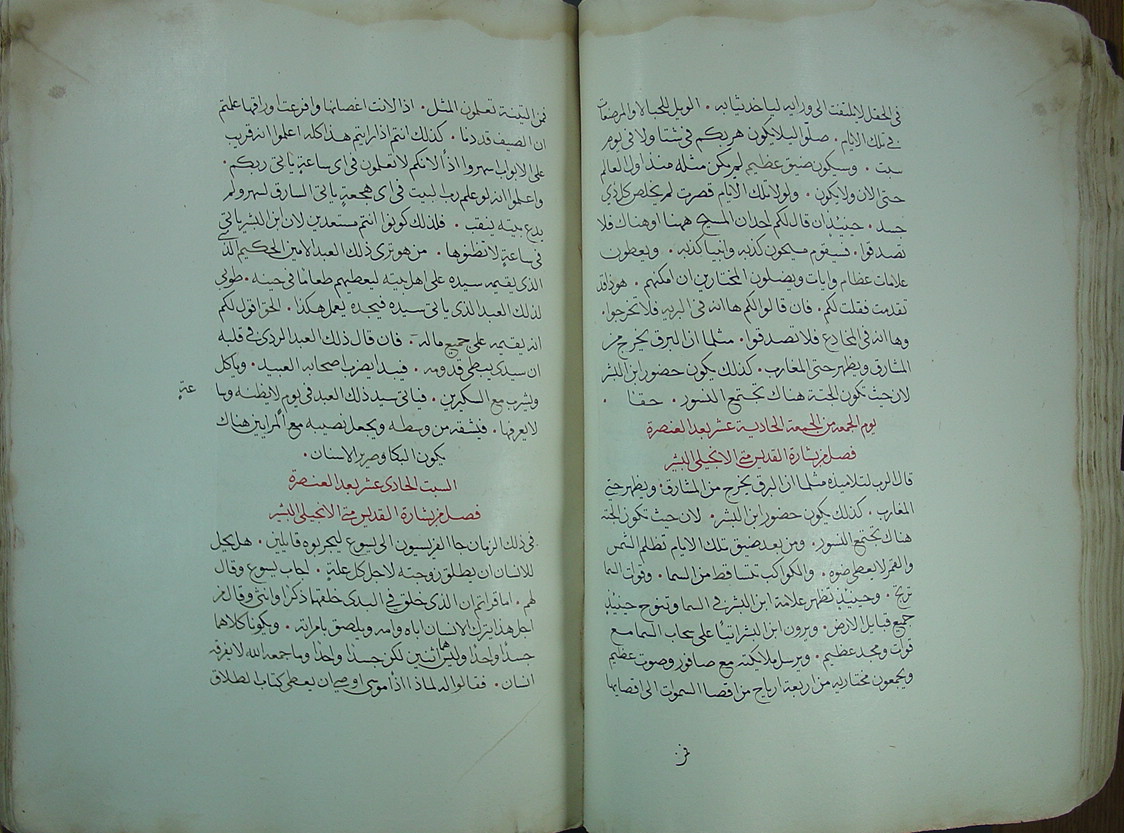 في الحقل لا يلتفت الى ورايه لياخد ثيابه . الويل للحبالا والمرضعات
في تلك الايام . صلوا ليلا يكون هربكم في شتا ولا في يوم
سبت . وسيكون ضيق عظيم لم يكن مثله منذ اول العالم
حتى الان ولا يكون . ولولا تلك الايام قصرت لم يخلص كل ذي
جسد . حينيذ ان قال لكم احد ان المسيح ههنا او هناك فلا
تصدقوا . فسيقوم مسيحون كذبه وانبيا كذبه . ويعطون
علامات عظام وايات ويضلون المختارين ان امكنهم . هوذا قد
تقدمت فقلت لكم . فان قالوا لكم ها انه في البريه فلا تخرجوا .
وها انه في المخادع فلا تصدقوا . مثلما ان البرق يخرج من
المشارق ويظهر حتى المغارب . كذلك يكون حضور ابن البشر
لان حيث تكون الجثة هناك تجتمع النسور . حقا .
يوم الجمعه من الجمعة الحادية عشر بعد العنصرة
فصل من بشارة القديس متى الانجيلي البشير
قال الرب لتلاميذه مثلما ان البرق يخرج من المشارق ويظهر حتى
المغارب . كذلك يكون حضور ابن البشر . لان حيث تكون الجثة
هناك تجتمع النسور . ومن بعد ضيق تلك الايام تظلم الشمس
والقمر لا يعطي ضوه . والكواكب تتساقط من السما . وقوات السما
ترتج . وحينيذ تظهر علامة ابن البشر في السما وتنوح حينيذ
جميع قبايل الارض . ويرون ابن البشر اتيا على سحاب السما مع
قوات ومجد عظيم . ويرسل ملايكته مع صافور وصوت عظيم
ويجمعون مختاريه من اربعة ارياح من اقصا السموات الى اقصايها
فمن
فمن التينة تعلمون المثل . اذا لانت اغصانها وافرعت اوراقها علمتم
ان الصيف قد دنا . كذلك انتم اذا رايتم هذا كله اعلموا انه قريب
على الابواب اسهروا اذا لانكم لا تعلمون في اي ساعة ياتي ربكم .
واعلموا انه لو علم رب البيت في اي هجعة ياتي السارق لسهر ولم
يدع بيته ينقب . فلذلك كونوا انتم مستعدين لان ابن البشر ياتي
في ساعة لا تظنوها . من هو ترى ذلك العبد الامين الحكيم
الذي يقيمه سيده على اهل بيته ليعطيهم طعاما في حينه . طوبى
لذلك العبد الذي ياتي سيده فيجده يعمل هكذا . الحق اقول لكم
انه يقيمه على جميع ماله . فان قال ذلك العبد الردي في قلبه
ان سيدي يبطي قدومه . فيبدا يضرب اصحابه العبيد . وياكل
ويشرب مع السكيرين . فياتي سيد ذلك العبد في يوم لا يظنه وساعة
لا يعرفها . فيشقه من وسطه ويجعل نصيبه مع المرايين هناك
يكون البكا وصرير الاسنان .
السبت الحادي عشر بعد العنصرة
فصل من بشارة القديس متى الانجيلي البشير
في ذلك الزمان جا الفريسيون الى يسوع ليجربوه قايلين . هل يحل
للانسان ان يطلق زوجته لاجل كل علة . اجاب يسوع وقال
لهم . اما قراتم ان الذي خلق في البدي خلقهما ذكرا وانثى وقال من
اجل هذا يترك الانسان اباه وامه ويلصق بامراته . ويكونا كلاهما
جسدا واحدا وليس هما اثنين لكن جسدا واحدا وما جمعه الله لا يفرقه
انسان . فقالوا له لماذا اذا موسى اوصى ان يعطى كتاب لطلاق